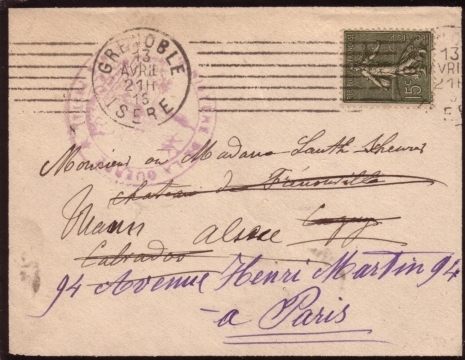 GRENOBLE
13
AVRIL
21H
15
ISERE
13
21H
15
Monsieur ou Madame Lauth Scheurer
Chateau de Frénouville
Thann Alsace Cagny
Calvados
94 Avenue Henri Martin 94
- a Paris